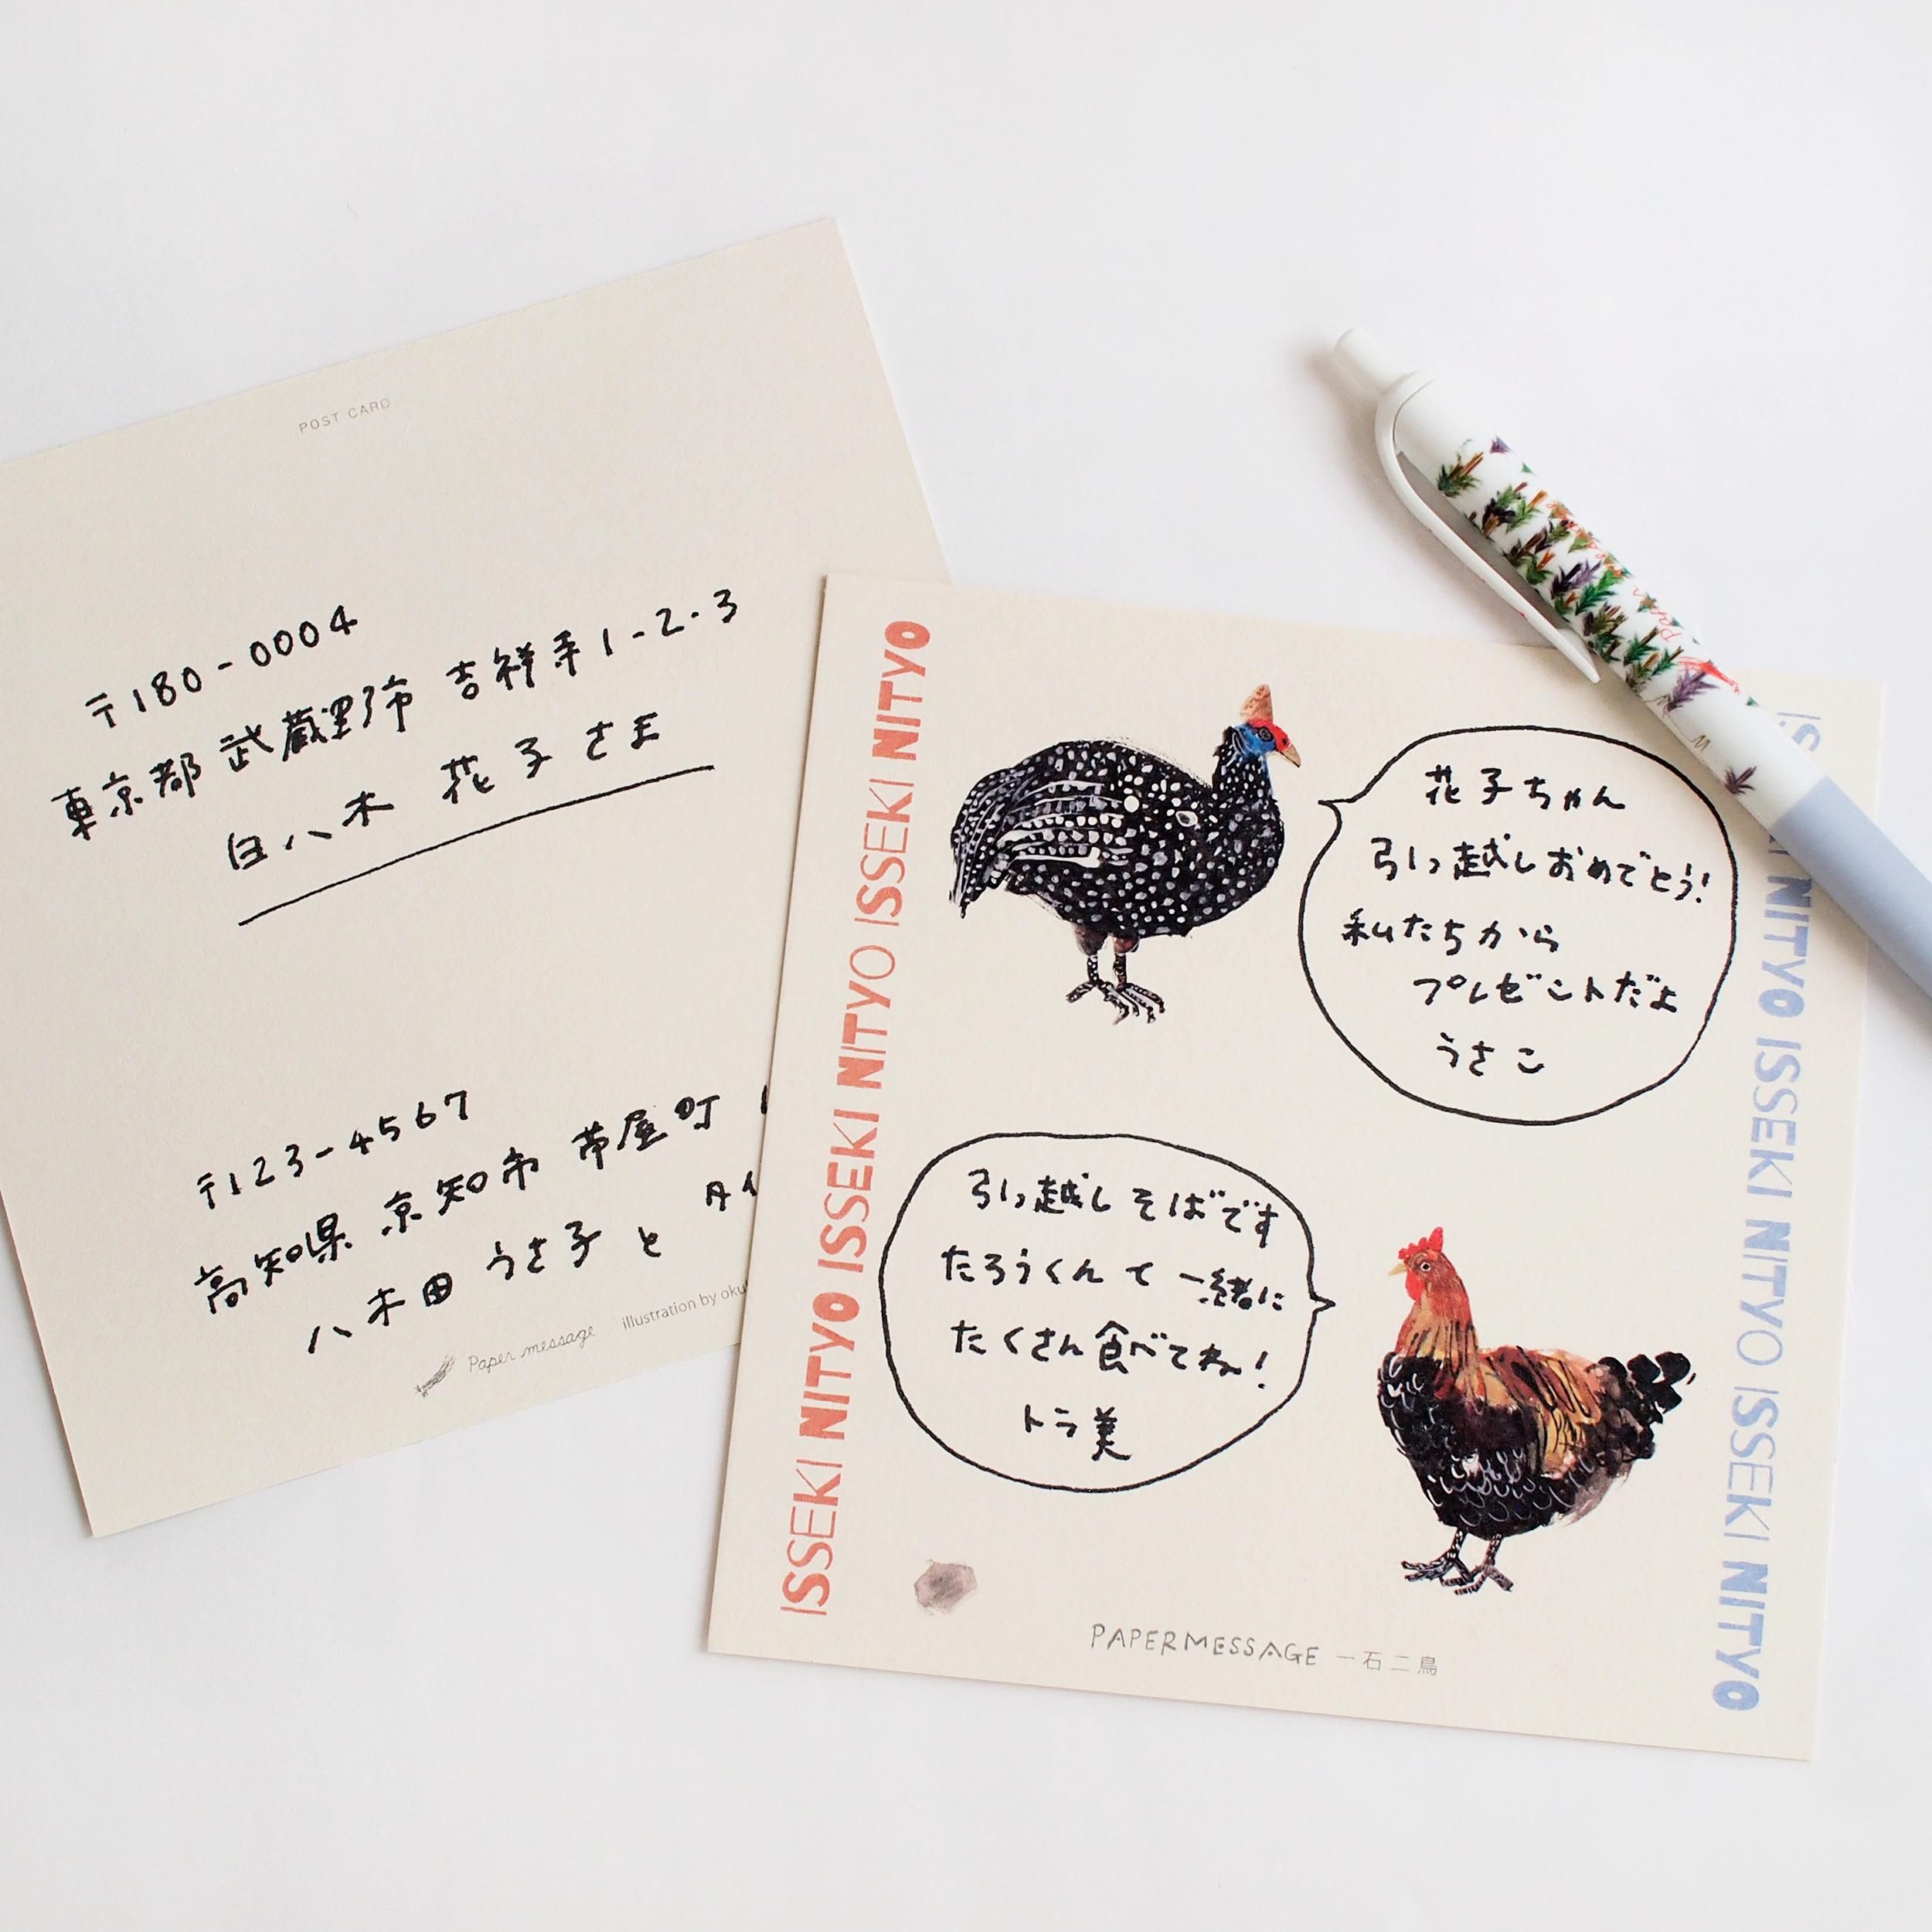 POST CARD
〒180-0004
東京都 武蔵野市 吉祥寺1-2-3
白八木 花子さま
〒123-4567
高知県 京知市 帯屋町
八木田 うさ子 と
Paper message illustration by oku
ISSEKI NITYO ISSEKI NITYO ISSEKI NITYO ISSEKI NITYO
花子ちゃん
引っ越しおめでとう!
私たちから
プレゼントだよ
うさこ
引っ越しそばです
たろうくんと一緒に
たくさん食べてね!
トラ美
NITYO ISSEKI NITYO ISSEKI NITYO
PAPERMESSAGE 一石二鳥